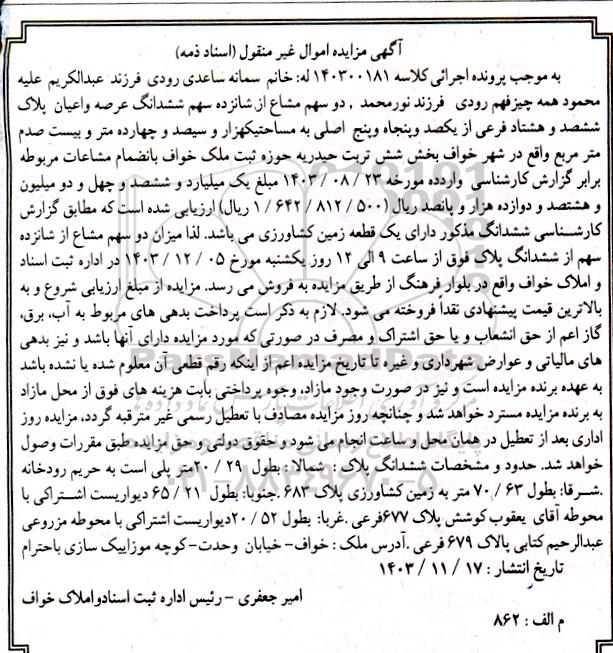 آگهی مزایده اموال غیر منقول (اسناد ذمه)
به موجب پرونده اجرائی کلاسه ۱۴۰۳۰۰۱۸۱ له: خانم سمانه ساعدی رودی فرزند عبدالکریم علیه
محمود همه چیزفهم رودی فرزند نورمحمد , دو سهم مشاع از شانزده سهم ششدانگ عرصه واعیان پلاک
ششصد و هشتاد فرعی از یکصد وپنجاه وپنج اصلی به مساحتیکهزار و سیصد و چهارده متر و بیست صدم
متر مربع واقع در شهر خواف بخش شش تربت حیدریه حوزه ثبت ملک خواف بانضمام مشاعات مربوطه
برابر گزارش کارشناسی واردده مورخه ۲۳ / ۰۸ / ۱۴۰۳ مبلغ یک میلیارد و ششصد و چهل و دو میلیون
و هشتصد و دوازده هزار و پانصد ریال (۵۰۰ / ۸۱۲ / ۶۴۲ / ۱ ریال) ارزیابی شده است که مطابق گزارش
کارشناسی ششدانگ مذکور دارای یک قطعه زمین کشاورزی می باشد. لذا میزان دو سهم مشاع از شانزده
سهم از ششدانگ پلاک فوق از ساعت ۹ الی ۱۲ روز یکشنبه مورخ ۰۵ / ۱۲ / ۱۴۰۳ در اداره ثبت اسناد
و املاک خواف واقع در بلوار فرهنگ از طریق مزایده به فروش می رسد. مزایده از مبلغ ارزیابی شروع و به
بالاترین قیمت پیشنهادی نقداً فروخته می شود. لازم به ذکر است پرداخت بدهی های مربوط به آب، برق،
گاز اعم از حق انشعاب و یا حق اشتراک و مصرف در صورتی که مورد مزایده دارای آنها باشد و نیز بدهی
های مالیاتی و عوارض شهرداری و غیره تا تاریخ مزایده اعم از اینکه رقم قطعی آن معلوم شده یا نشده باشد
به عهده برنده مزایده است و نیز در صورت وجود مازاد، وجوه پرداختی بابت هزینه های فوق از محل مازاد
به برنده مزایده مسترد خواهد شد و چنانچه روز مزایده مصادف با تعطیل رسمی غیر مترقبه گردد، مزایده روز
اداری بعد از تعطیل در همان محل و ساعت انجام می شود و حقوق دولتی و حق مزایده طبق مقررات وصول
خواهد شد. حدود و مشخصات ششدانگ پلاک : شمالا : بطول ۲۹ / ۲۰متر پلی است به حریم رودخانه
.شرقا: بطول ۶۳ / ۷۰ متر به زمین کشاورزی پلاک ۶۸۳ .جنوبا: بطول ۲۱ / ۶۵ دیواریست اشتراکی با
محوطه آقای یعقوب کوشش پلاک ۶۷۷فرعی .غربا: بطول ۵۲ / ۲۰دیواریست اشتراکی با محوطه مزروعی
عبدالرحیم کتابی پالاک ۶۷۹ فرعی .آدرس ملک : خواف- خیابان وحدت-کوچه موزاییک سازی باحترام
تاریخ انتشار : ۱۷ / ۱۱ / ۱۴۰۳
امیر جعفری – رئیس اداره ثبت اسنادواملاک خواف
م الف : ۸۶۲
ParsNamadData
۰۲۱-۸۸۳۴۹۶۷۰-۵